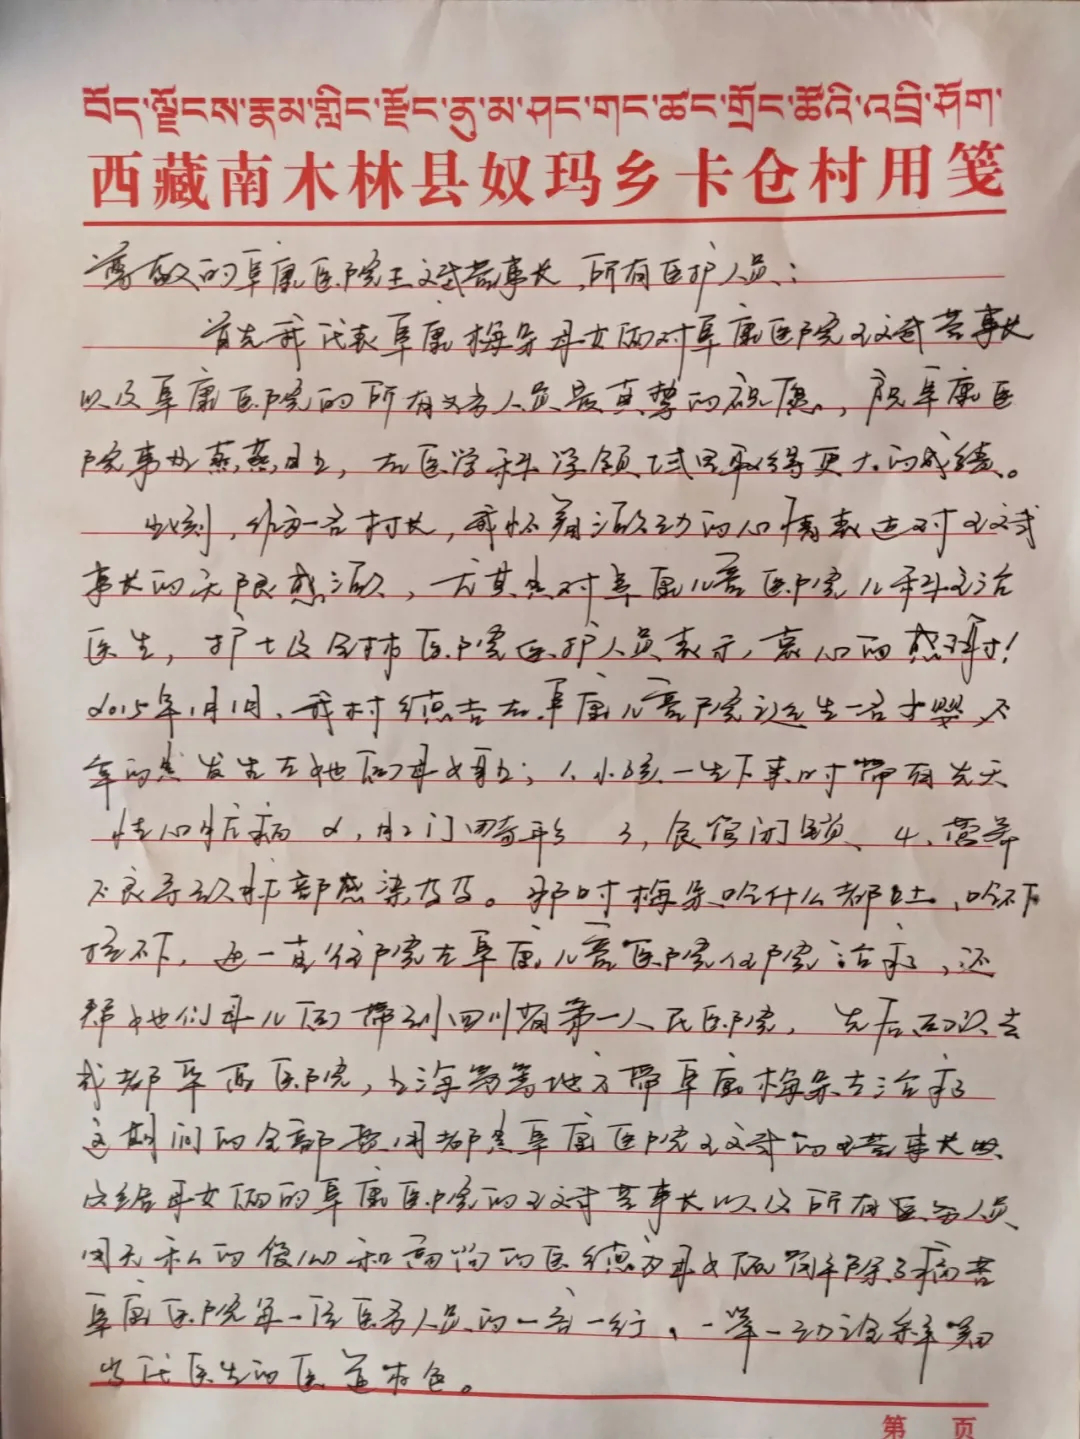 བོད་ལྗོངས་རྣམ་གླིང་རྫོང་ནུ་མ་ཤང་གང་ཚང་གྲོང་ཚོའི་འབྲི་ཤོག་
西藏南木林县奴玛乡卡仓村用笺
尊敬的阜康医院王文武董事长,所有医护人员:
首先我代表阜康梅朵母女俩对阜康医院王文武董事长
以及阜康医院的所有义务人员最真挚的祝愿,祝阜康医
院事业蒸蒸日上,在医学科学领域里取得更大的成绩。
此刻,作为一名村长,我怀着激动的心情表达对王文武
事长的无限感激,尤其是对阜康儿童医院儿科主治
医生,护士及全体医院医护人员表示,衷心的感谢!
2015年1月1日、我村德吉在阜康儿童院诞生一名女婴,不
幸的是发生在她俩母女身上;1、小孩一生下来时带有先天
性心脏病 2,肛门畸形 3,食管闭锁、4、营养
不良导致肺部感染等等。那时梅朵吃什么都吐、吃不下
拉不下,还一直住院在阜康儿童医院住院治疗,还
帮她们母儿俩带到四川省第一人民医院,先后两次去
成都华西医院,上海等等地方带阜康梅朵去治疗
这期间的全部费用都是阜康医院王文武的董事长出
这给母女俩的阜康医院的王文武董事长以及所有医务人员、
用无私的爱心和高尚的医德为母女俩解除了病苦
阜康医院每一位医务人员的一言一行、一举一动诠释着
当代医生的医道本色。
第 页